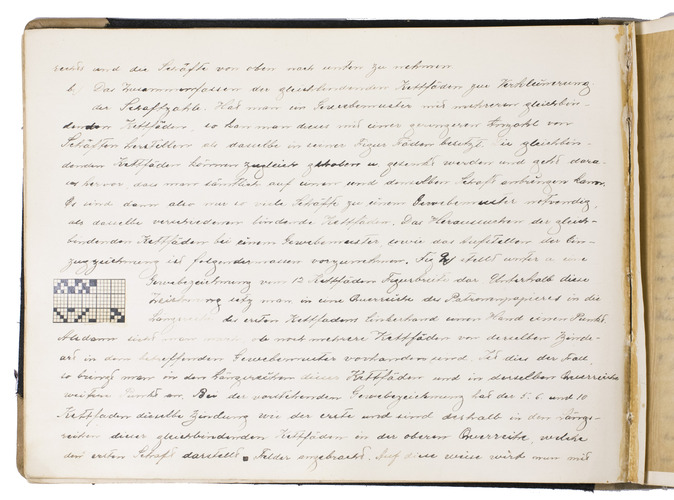 rechts und die Schäfte von oben nach unten zu nehmen
b, Das Zusammenfassen der gleichbindenden Kettfäden zur Verkleinerung
der Schaftzahl. Hat man ein Gewebemuster mit mehreren gleichbin-
denden Kettfäden, so kan man dieses mit einer geringeren Anzahl von
Schäften herstellen als dasselbe in seiner Figur Fäden besitzt. Die gleichbin-
denden Kettfäden können zugleich gehoben u. gesenkt werden und geht dara-
us hervor, dass man sämtlich auf einen und denselben Schaft anbringen kann.
Es sind dann also nur so viele Schäfte zu einem Gewebemuster notwendig,
als dasselbe verschiedene bindende Kettfäden. Das Heraussuchen der gleich-
bindenden Kettfäden bei einem Gewebemuster sowie das Aufstellen der Ein-
zugszeichnung ist folgendermassen vorzunehmen. Fig stellt unter a eine
Gewebezeichnung vom 12 Kettfäden Figurbreite dar. Unterhalb diese
Zeichnung setz man in eine Querreihe des Patronenpapieres in die
Längsreihe des ersten Kettfadens linkerhand einen Punkt.
Alsdann sieht man nach ob noch mehrere Kettfäden von derselben Bindu-
art in dem betreffenden Gewebemuster vorhanden sind. Ist dies der Fall,
so bringt man in den Längsreihen dieser Kettfäden und in derselben Querreihe
weitere Punkte an. Bei der vorstehenden Gewebezeichnung hat der 5. 6 und 10
Kettfaden dieselbe Bindung wie der erste und sind deshalb in den Längs-
reihen dieser gleichbindenden Kettfäden in der oberen Querreihe, welche
den ersten Schaft darstellt, Felder angebracht. Auf diese weise wird man mit